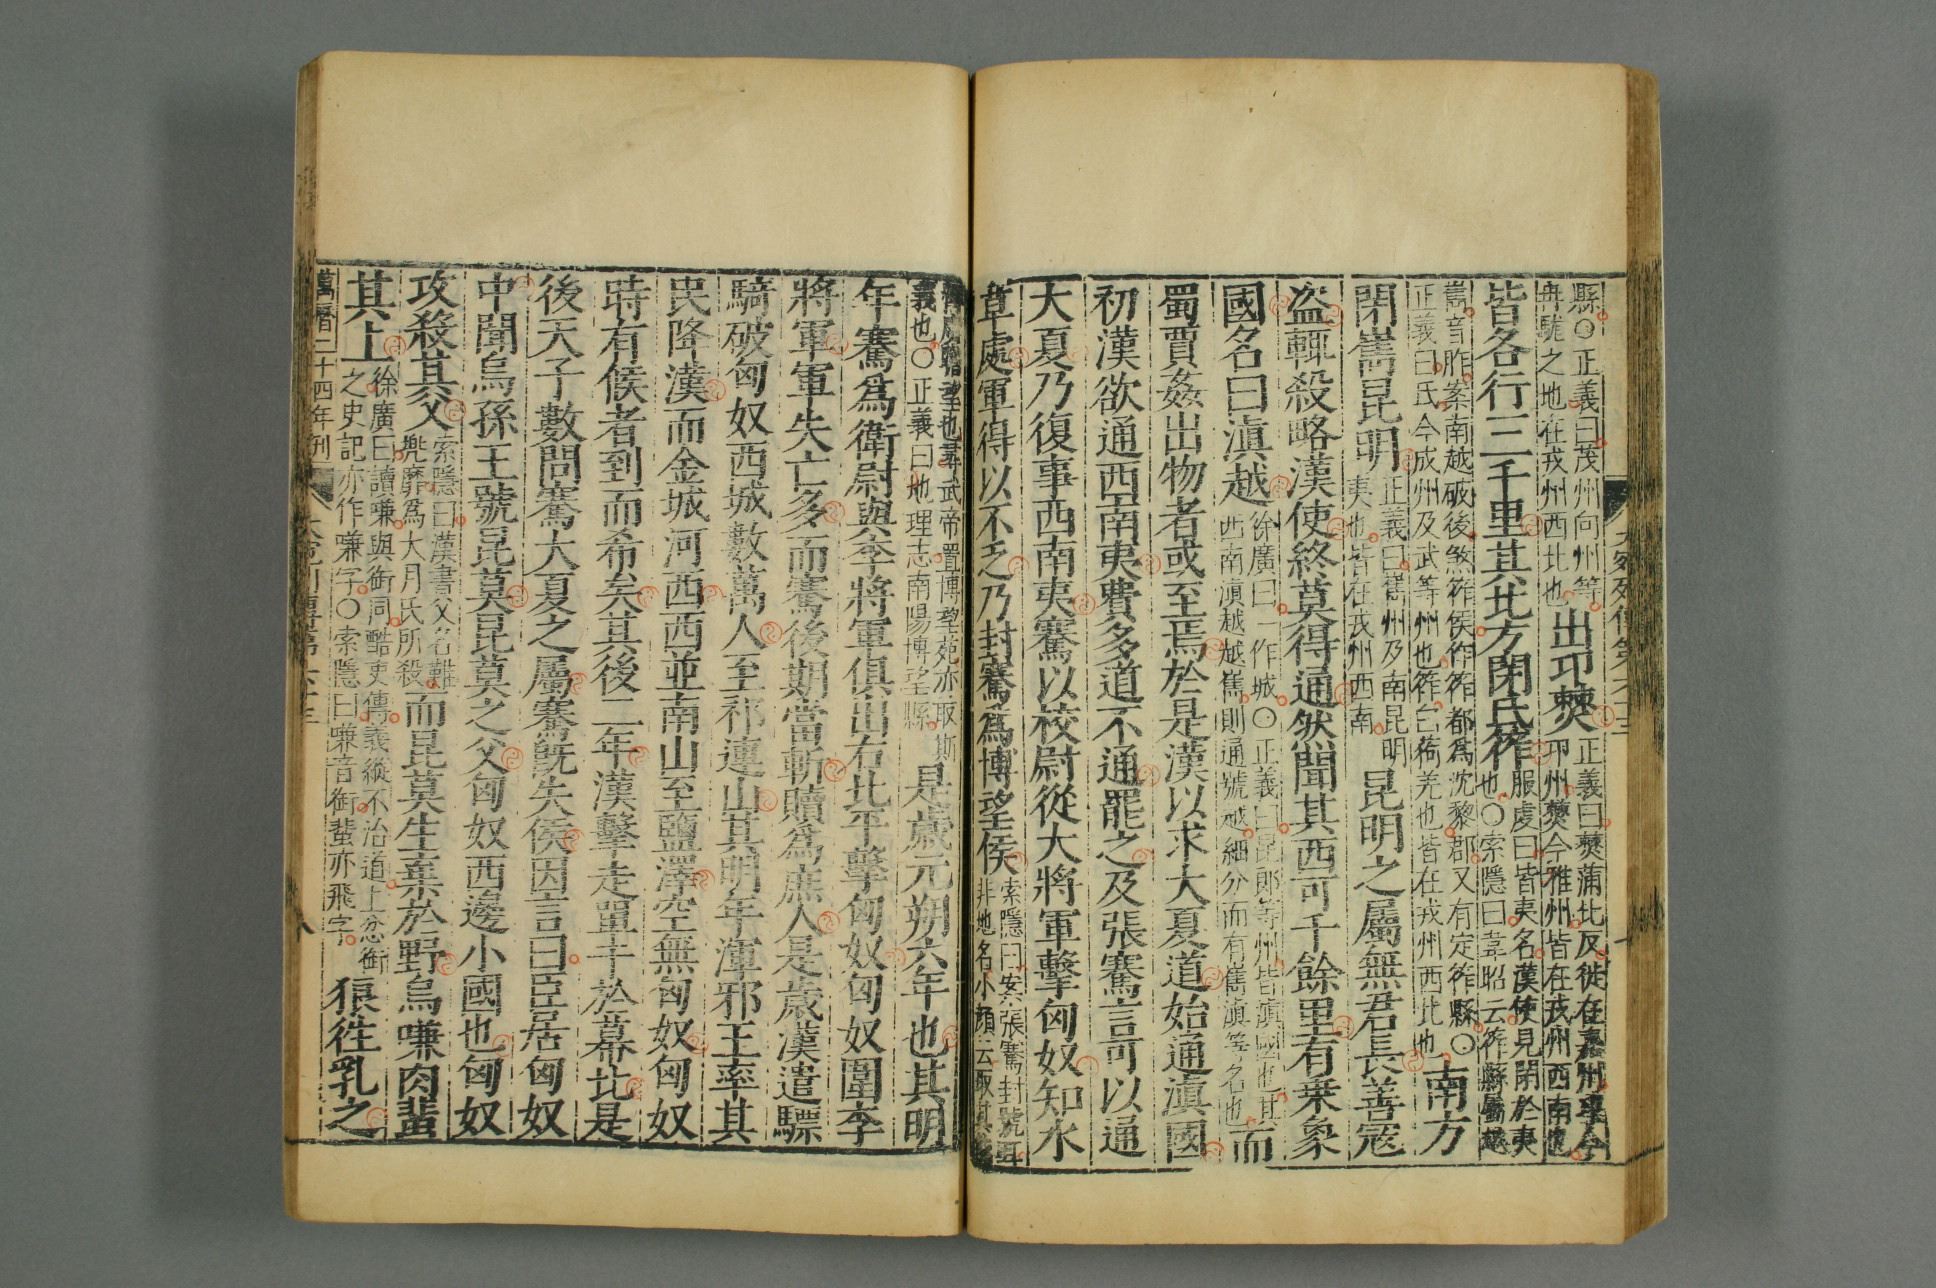 縣○正義曰茂州向州等
冉駹之地在戎州西北也
出卭僰
正義曰僰蒲北反徙在嘉州
卭州僰今雅州皆在戎州西南也
皆各行一二千里其北方閉氐筰
服虔曰皆夷名漢使見閉於夷
也○索隱曰韋昭云筰縣屬越
嶲音昨案南越破後煞筰侯作筰都爲沈黎郡又有定筰縣○
正義曰氐今成州及武等州也筰白狗羌也皆在戎州西北也
南方
閉嶲昆明
正義曰嶲州及南昆明
夷也皆在戎州西南
昆明之屬無君長善寇
盜輒殺略漢使終莫得通然聞其西可千餘里有乗象
國名曰滇越
徐廣曰一作城○正義曰昆郎等州皆滇國也其
西南滇越越嶲則通號越細分而有嶲滇等名也
而
蜀賈姦出物者或至焉於是漢以求大夏道始通滇國
初漢欲通西南夷費多道不通罷之及張騫言可以通
大夏乃復事西南夷騫以校尉從大將軍擊匈奴知水
草處軍得以不乏乃封騫爲博望侯
索隱曰案張騫封號耳
非地名小顔云取其
博廣瞻望也尋武帝置博望苑亦取斯
義也○正義曰地理志南陽博望縣
是歲元朔六年也其明
年騫爲衛尉與李將軍俱出右北平擊匈奴匈奴圍李
將軍軍失亡多而騫後期當斬贖爲庶人是歲漢遣驃
騎破匈奴西城數萬人至祁連山其明年渾邪王率其
民降漢而金城河西西並南山至鹽澤空無匈奴匈奴
時有候者到而希矣其後二年漢擊走單于於幕北是
後天子數問騫大夏之屬騫旣失侯因言曰臣居匈奴
中聞烏孫王號昆莫昆莫之父匈奴西邊小國也匈奴
攻殺其父
索隱曰漢書父名難
兠靡爲大月氏所殺
而昆莫生棄於野烏嗛肉蜚
其上
徐廣曰讀嗛與銜同酷吏傳義縱不治道上忿銜
之史記亦作嗛字○索隱曰嗛音銜蜚亦飛字
狼徃乳之
萬曆二十四年刊
大宛列傳第六十三
八